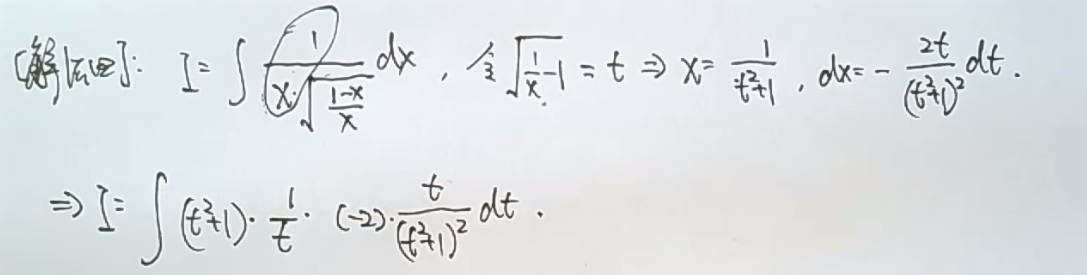 [解法四]: I = ∫ 1/(x·√((1-x)/x)) dx , 令 √(1/x - 1) = t ⇒ x = 1/(t²+1) , dx = - 2t/(t²+1)² dt .
⇒ I = ∫ (t²+1) · 1/t · (-2) · t/(t²+1)² dt .